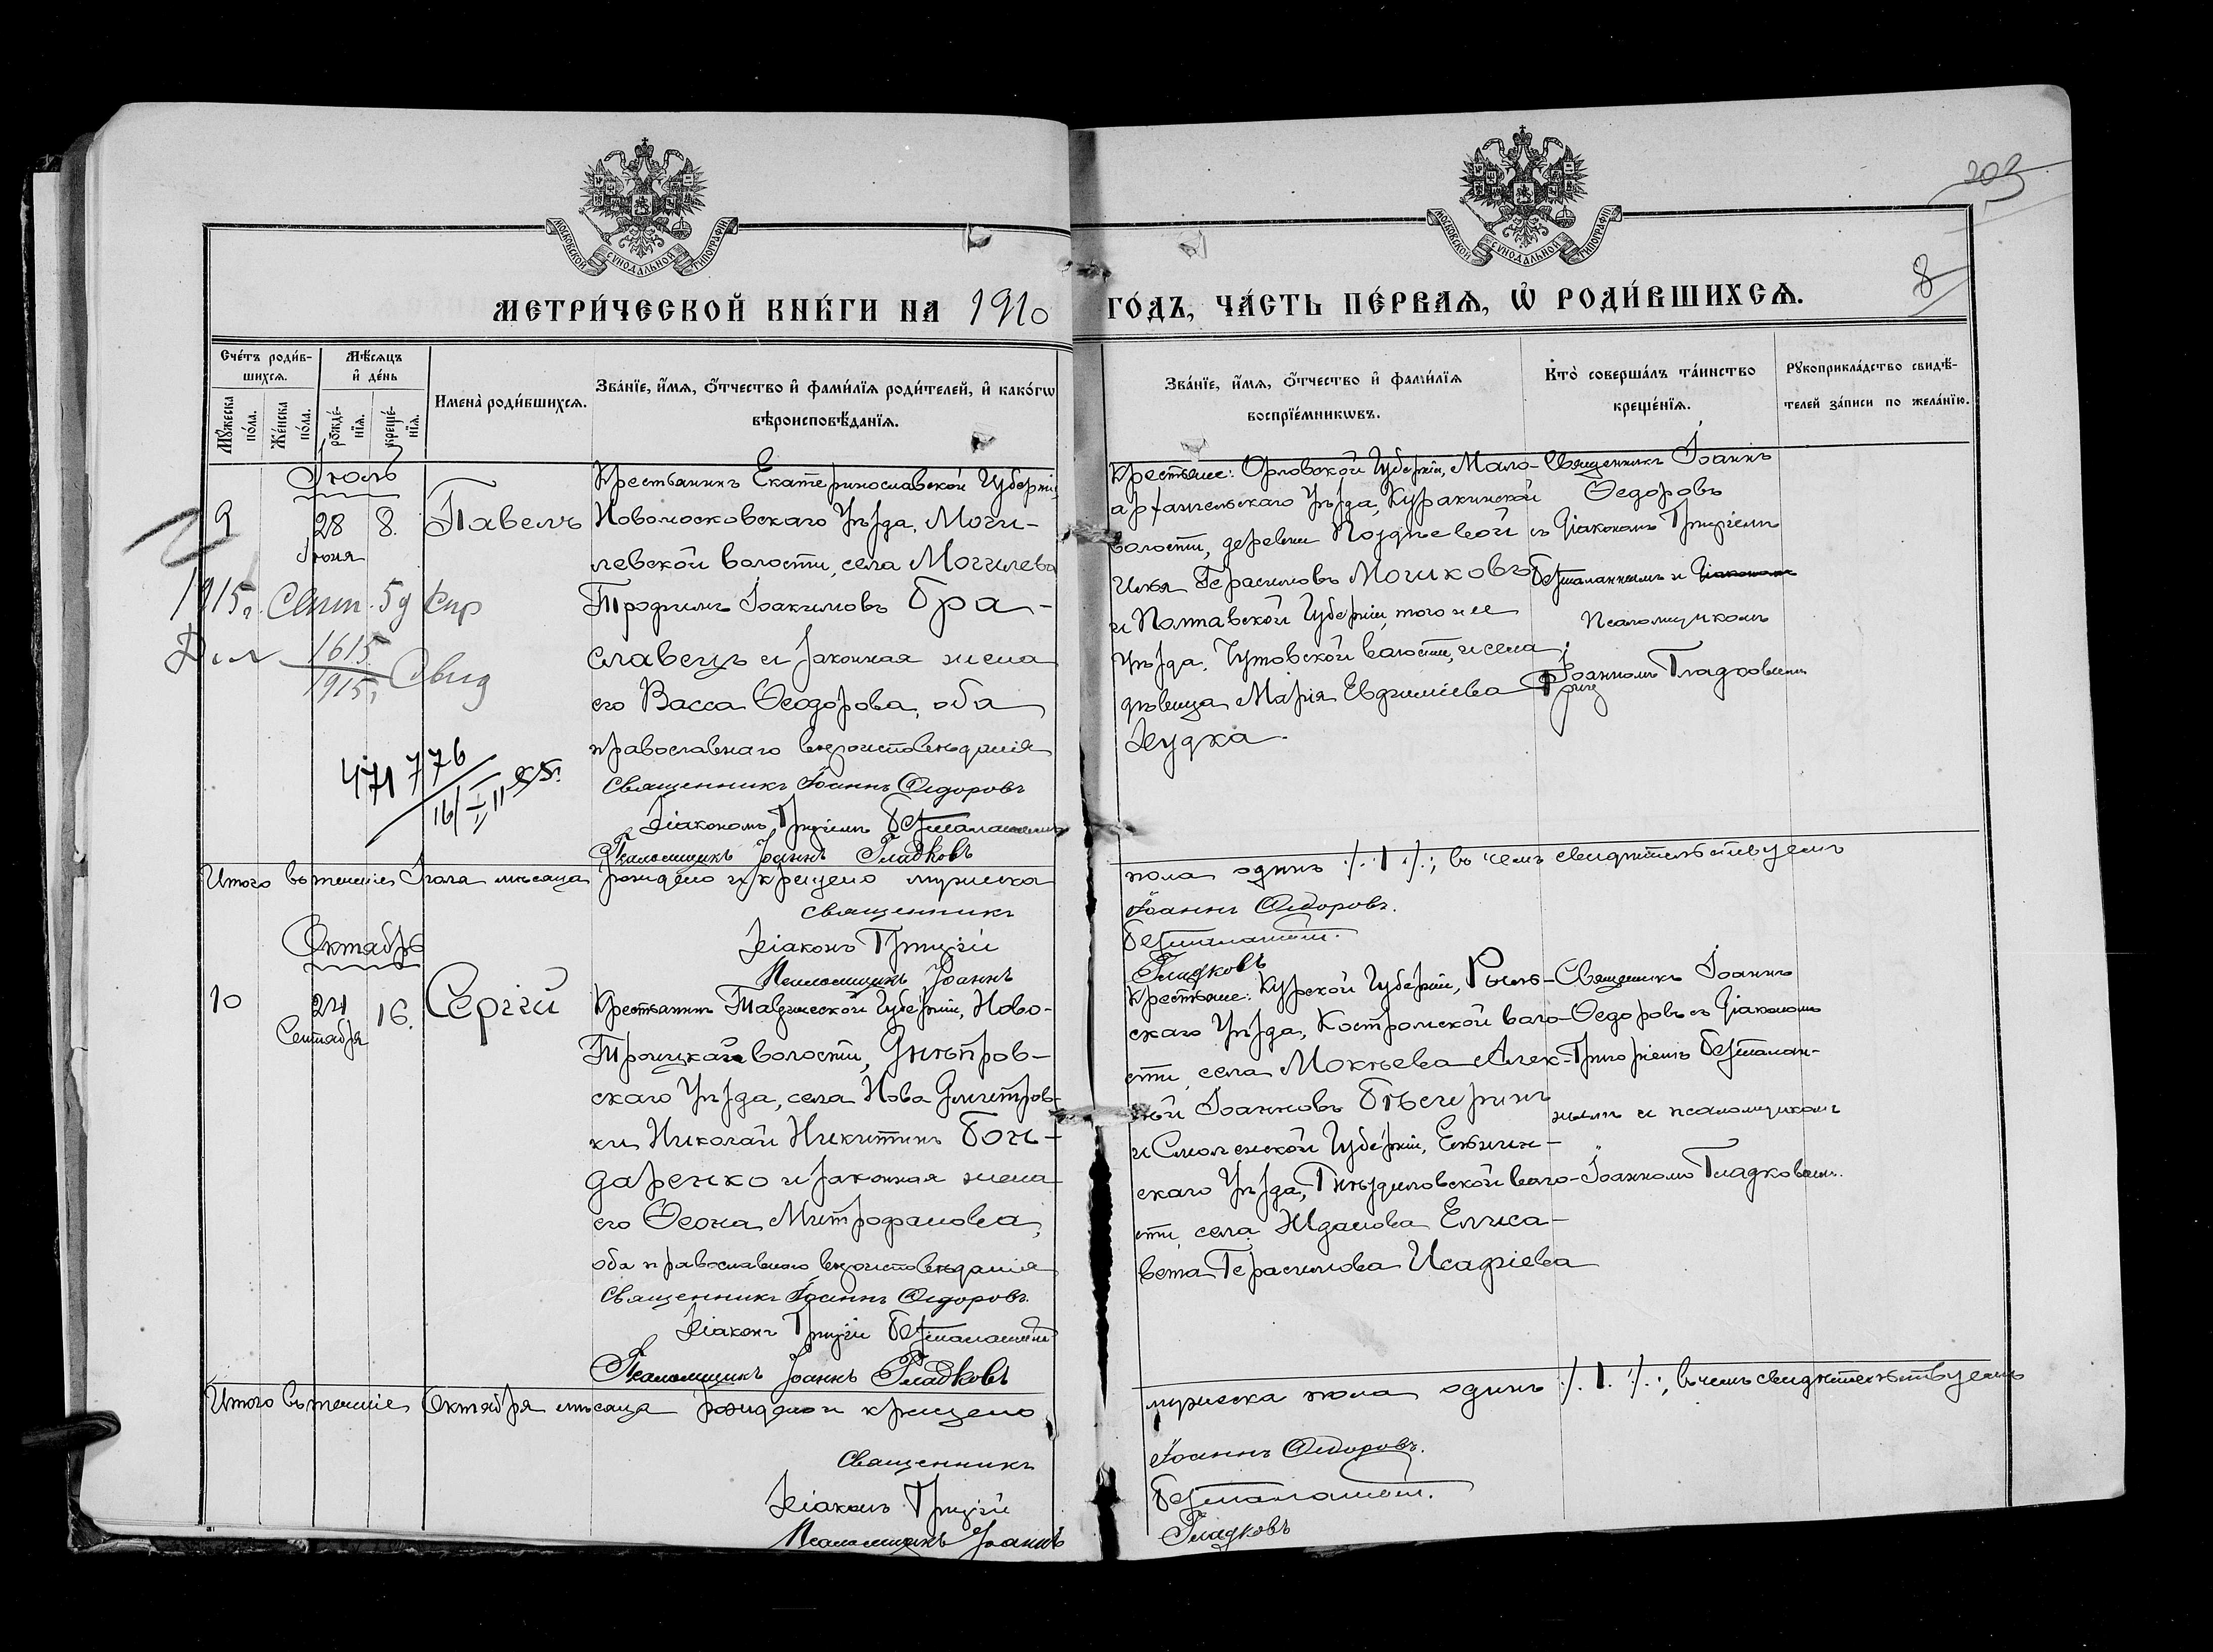 203
8
МОСКОВСКОЙ СѴНОДАЛЬНОЙ ТИПОГРАФІИ
МОСКОВСКОЙ СѴНОДАЛЬНОЙ ТИПОГРАФІИ
МЕТРИ́ЧЕСКОЙ КНИ́ГИ НА 1910 ГО́ДЪ, ЧА́СТЬ ПЕ́РВАѦ, Ѡ҆ РОДИ́ВШИХСѦ.
Сче́тъ роди́в-
шихсѧ.
Мꙋ́жеска по́ла.
Же́нска по́ла.
Мѣ́сѧцъ
и҆ де́нь
рожде́-
нїѧ.
креще́-
нїѧ.
Имена̀ роди́вшихсѧ.
Зва́нїе, и҆́мѧ, ѻ҆́тчество и҆ фами́лїѧ роди́телей, и҆ како́гѡ
вѣроисповѣ́данїѧ.
Зва́нїе, и҆́мѧ, ѻ҆́тчество и҆ фами́лїѧ
воспрїе́мникѡвъ.
Кто̀ соверша́лъ та́инство
креще́нїѧ.
Рꙋкоприкла́дство свидѣ́-
телей за́писи по жела́нїю.
Іюль
9
28
Іюня
8.
Павелъ
Крестьянинъ Екатеринославской Губерніи,
Новомосковскаго Уѣзда, Моги-
левской волости, села Могилева
Трофимъ Іоакимовъ Бра-
славецъ и законная жена
его Васса Ѳеодорова, оба
православнаго вѣроисповѣданія
Священникъ Іоаннъ Ѳедоровъ
Діаконъ Григорій Безталанный
Псаломщикъ Іоаннъ Гладковъ
1915г.
1615
1915г.
Свид
471776
16/II
Крестьяне: Орловской Губерніи, Мало-
архангельскаго Уѣзда, Куракинской
волости, деревни Позднѣевой
Илья Герасимовъ Мошковъ
и Полтавской Губерніи, того же
Уѣзда, Чутовской волости, и села
дѣвица Марія Евфиміева
Дудка.
Священникъ Іоаннъ
Ѳедоровъ
съ Діакономъ Григоріемъ
Безталаннымъ и
Псаломщикомъ
Іоанномъ Гладковымъ
Итого въ теченіе Іюля мѣсяца рождено и крещено мужеска
пола одинъ /.1./; въ чемъ свидѣтельствуемъ
Священникъ Іоаннъ Ѳедоровъ.
Діаконъ Григорій Безталанный.
Псаломщикъ Іоаннъ Гладковъ
Октябрь
10
24
Сентября
16.
Сергій
Крестьянинъ Таврической Губерніи, Ново-
Троицкой волости, Днѣпров-
скаго Уѣзда, села Нова Дмитров-
ки Николай Никитинъ Бон-
даренко и законная жена
его Ѳеона Митрофанова,
оба православнаго вѣроисповѣданія
Священникъ Іоаннъ Ѳедоровъ.
Діаконъ Григорій Безталанный
Псаломщикъ Іоаннъ Гладковъ
Крестьяне: Курской Губерніи, Рыль-
скаго Уѣзда, Костромской воло-
сти, села Мокѣева Алек-
сѣй Іоанновъ
и Смоленской Губерніи, Ельнин-
скаго Уѣзда, Гнѣздиловской воло-
сти, села Жданова Елиса-
вета Герасимова
Священникъ Іоаннъ
Ѳедоровъ съ Діакономъ
Григоріемъ Безталан-
нымъ и псаломщикомъ
Іоанномъ Гладковымъ.
Итого въ теченіе Октября мѣсяца рождено и крещено
мужеска пола одинъ /.1./; въ чемъ свидѣтельствуемъ
Священникъ Іоаннъ Ѳедоровъ.
Діаконъ Григорій Безталанный.
Псаломщикъ Іоаннъ Гладковъ